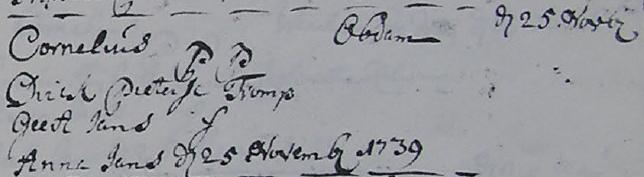 Cornelius Obdam d 25 Novb
P P
Dirck Pieterse Tromp
Geert Jans f
Anna Jans d 25 Novemb 1739